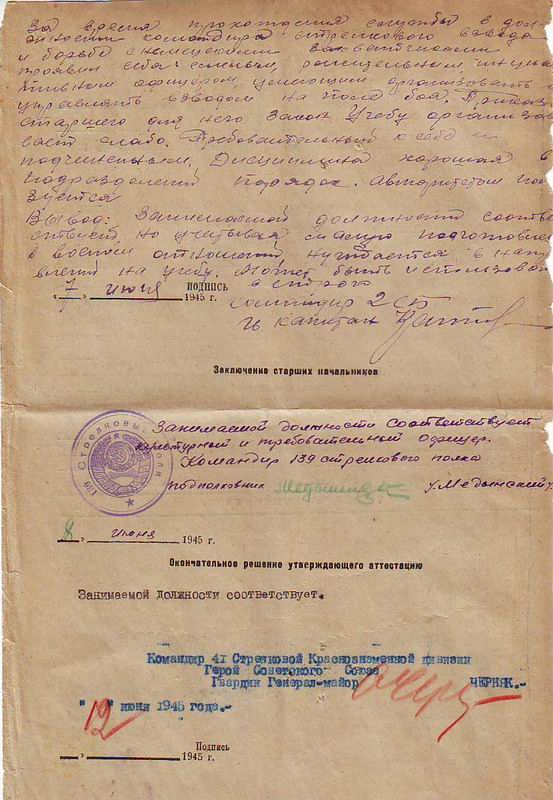 За время прохождения службы в дол-
жности командира стрелкового взвода
и борьбе с немецкими захватчиками
проявил себя: смелым, решительным, инициа-
тивным офицером, умеющим организовать и
управлять взводом на поле боя. Приказ
старшего для него закон. Учебу организо
вает слабо. Требовательный к себе и
подчиненным, Дисциплина хорошая в
подразделении порядок. Авторитетом поль
зуется
Вывод: Занимаемой должности соответ
ствует, но учитывая слабую подготовку
в военном отношении нуждается в напра
влении на учебу. Может быть использован
в строю
"7" июня 1945 г.
ПОДПИСЬ
Командир 2 СБ
капитан
Заключение старших начальников
Занимаемой должности соответствует
культурный и требовательный офицер.
Командир 139 стрелкового полка
подполковник /Медынский/.
Стрелковый полк 139
"8" июня 1945 г.
Окончательное решение утверждающего аттестацию
Занимаемой должности соответствует.
Командир 41 Стрелковой Краснознаменной дивизии
Герой Советского Союза
Гвардии Генерал-майор ЧЕРНЯК.-
"12" июня 1945 года.-
Подпись
"  "  1945 г.